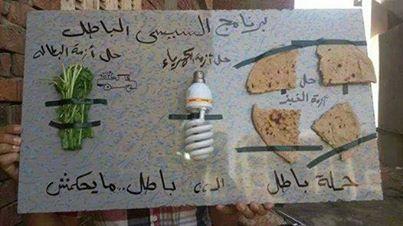 برنامج السيسى الباطل
حل أزمة البطالة
حل أزمة الكهرباء
حل
أزمة الخبز
حملة باطل
باطل..مايحكمش